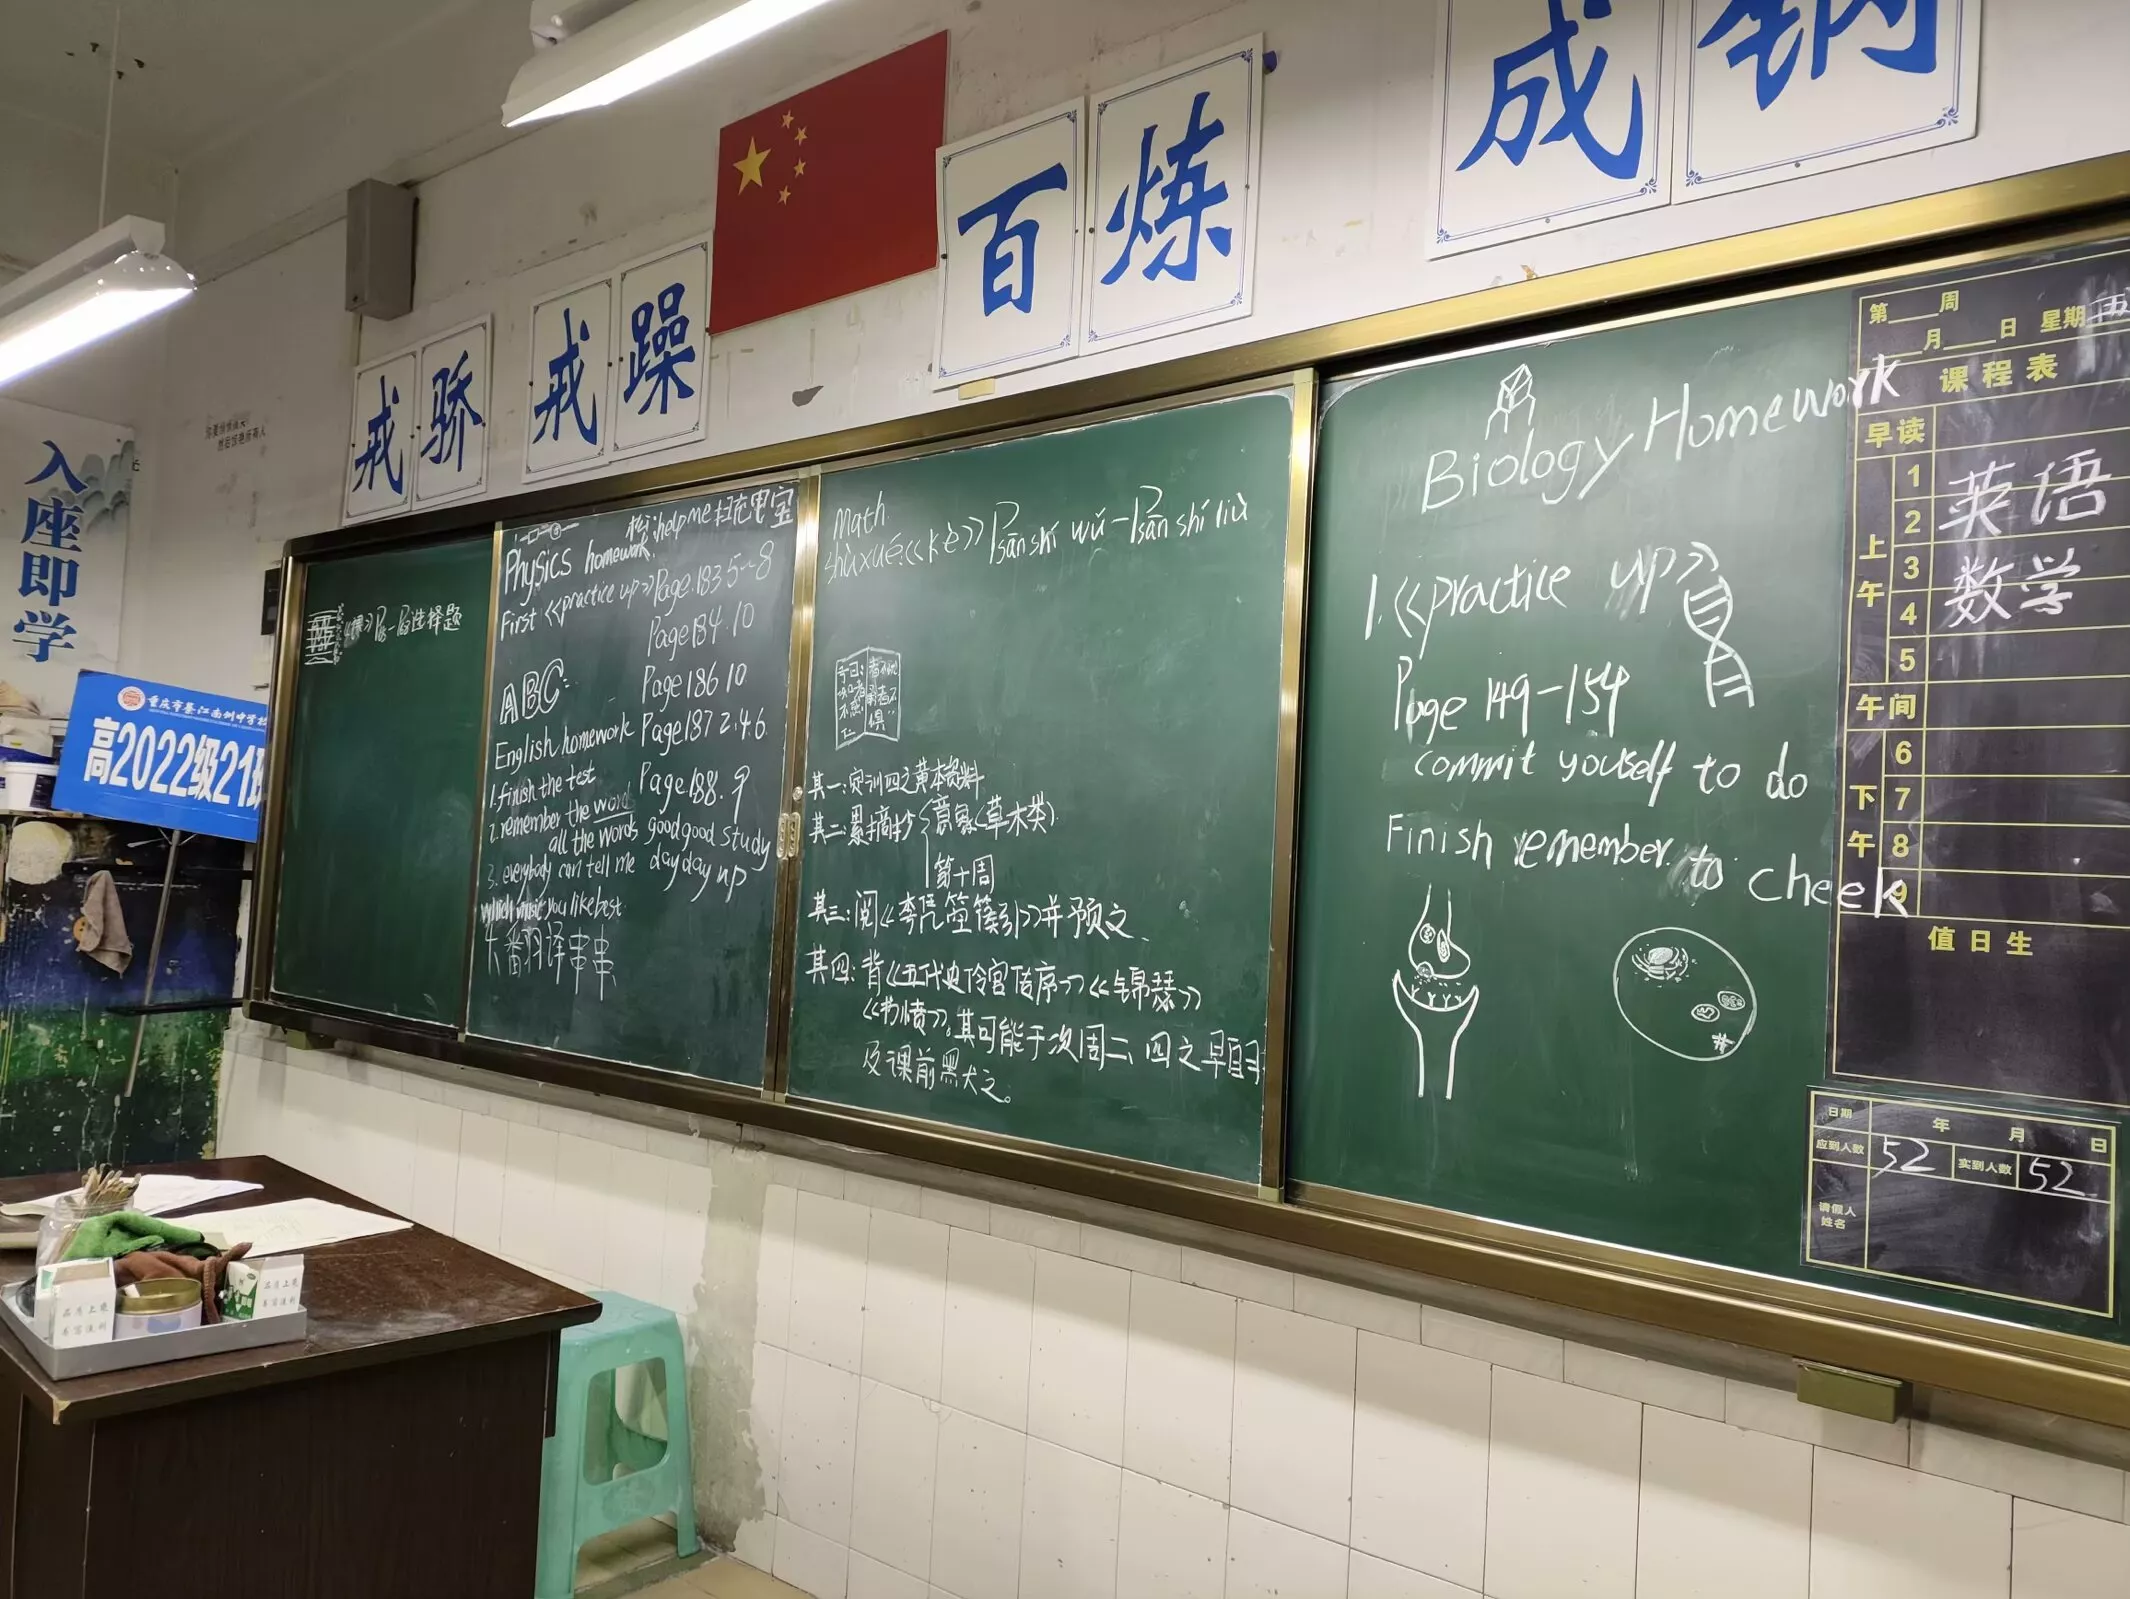 戒骄
戒躁
百炼
成钢
入座即学
重庆市綦江南州中学校
高2022级21班
选择题
help me 扫充电宝
Physics homework.
First <<practice up>> Page.183 5~8
Page184.10
Page186 10
Page187 2.4.6
Page188.9
ABC:
English homework
1.finish the test
2.remember the word
all the words
3. everybody can tell me
which music you like best.
good good study
day day up
翻译串串
Math
shùxué:<<kè>> Psānshí wǔ-Psān shí liù
其一:定训四之黄本资料
其二:累摘抄 意象(草木类)
第十周
其三:阅<<李凭箜篌引>>并预文
其四:背<<五代史伶官传序>><<锦瑟>>
<<书愤>>。其可能于次周二、四之早自习
及课前黑犬之。
Biology Homework
1.<<practice up>>
Page 149-154
commit youself to do
Finish remember to cheek
第 周
月 日 星期五
课程表
早读
上午
1
2
英语
3
4
数学
5
午间
下午
6
7
8
9
值日生
日期 年 月 日
应到人数 52 实到人数 52
请假人
姓名